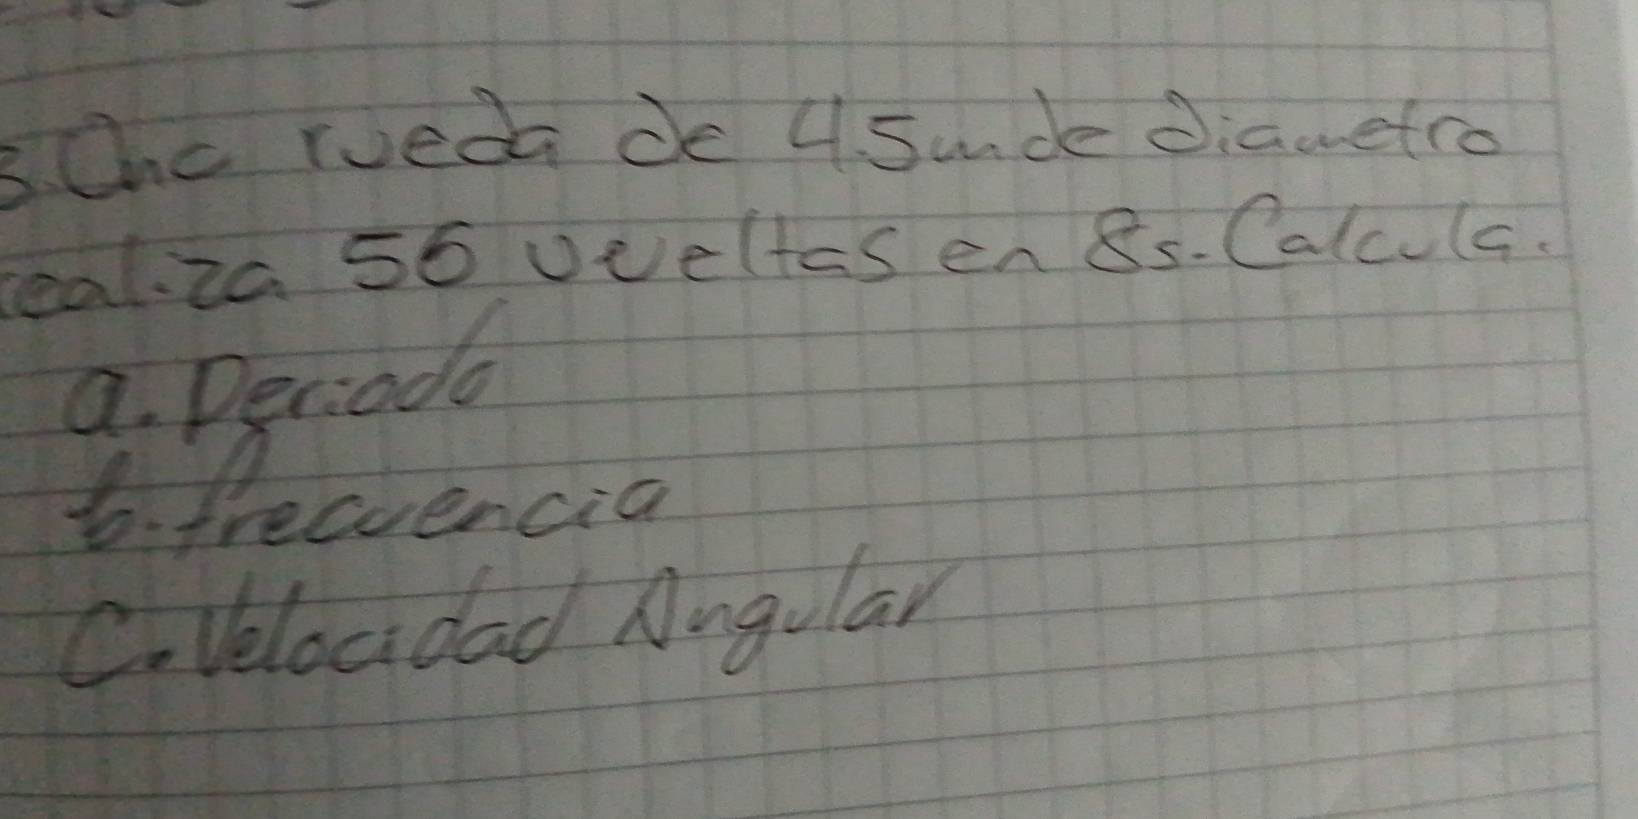 3. Una rueda de 4.5m de diametro
realiza 56 vueltas en 8s. Calcula.
a. Periodo
b. frecuencia
C. Velocidad Angular